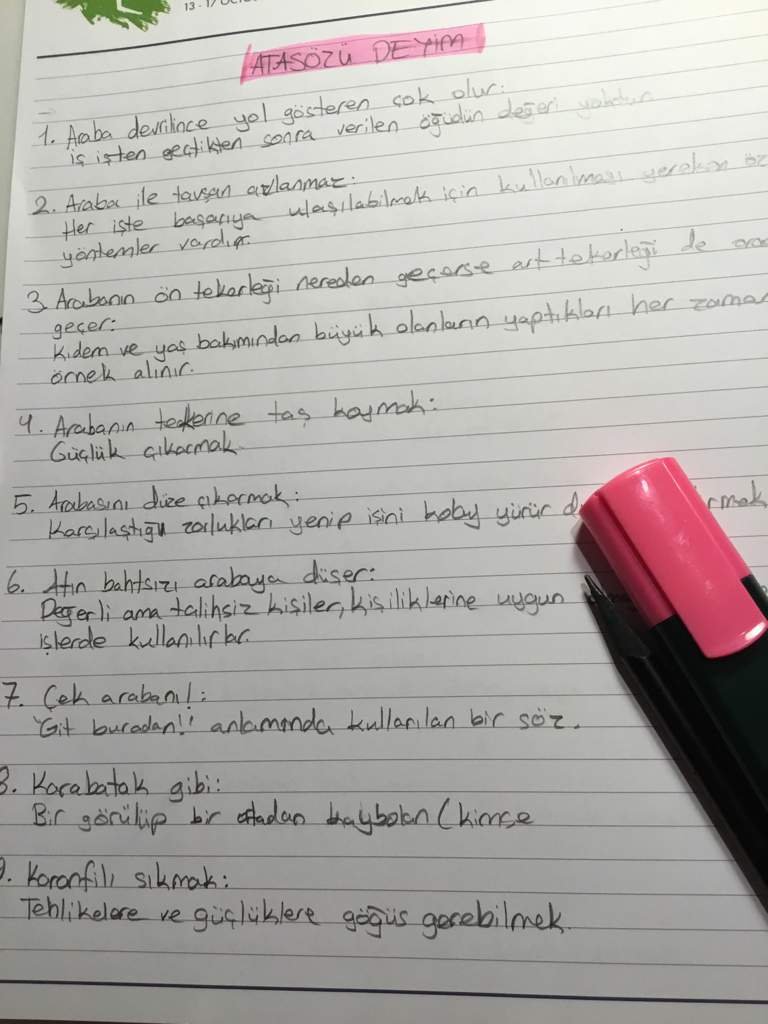 13-17
ATASÖZÜ DEYİM
1. Araba devrilince yol gösteren çok olur:
iş işten geçtikten sonra verilen öğüdün değeri yoktur
2. Araba ile tavşan avlanmaz:
Her işte başarıya ulaşılabilmek için kullanılması gereken öz
yöntemler vardır.
3. Arabanın ön tekerleği nereden geçerse art tekerleği de
geçer:
Kıdem ve yaş bakımından büyük olanların yaptıkları her zaman
örnek alınır.
4. Arabanın tekerine taş koymak:
Güçlük çıkarmak
5. Arabasını düze çıkarmak:
Karşılaştığı zorlukları yenip işini kolay yürür
6. Atın bahtsızı arabaya düşer:
Değerli ama talihsiz kişiler, kişiliklerine uygun
işlerde kullanılırlar.
7. Çek arabanı!:
"Git buradan!" anlamında kullanılan bir söz.
8. Karabatak gibi:
Bir görülüp bir ortadan kaybolan (kimse
9. Karanfili sıkmak:
Tehlikelere ve güçlüklere göğüs gerebilmek.